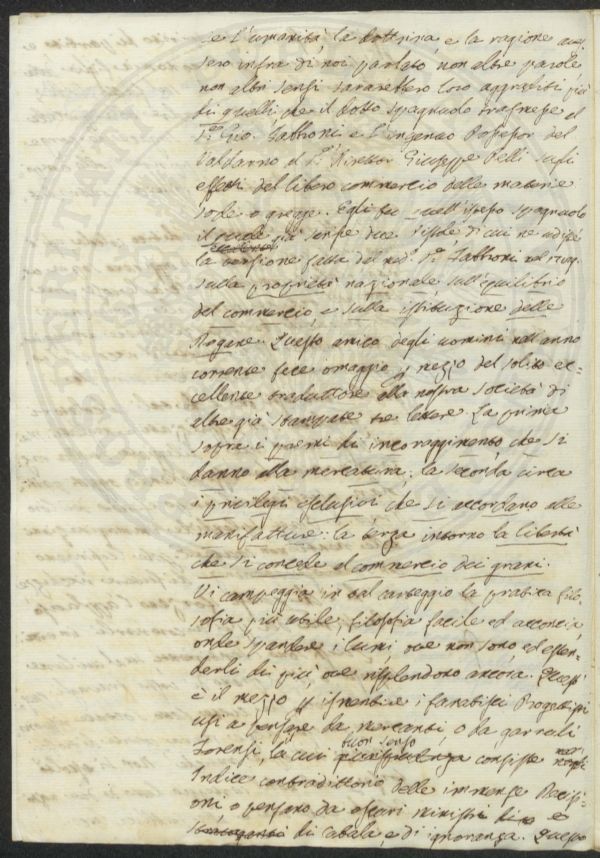 se l'umanità, la dottrina, e la ragione aves
sero infra di noi parlato non altre parole
non altri sensi sarebbero loro aggraditi più
di quelli che il dotto spagnuolo trasmesse al
Sr. Gio. Fabbroni e l'ingenuo Possessor del
Valdarno al Sr. Direttor Giuseppe Pelli sugli
effetti del libero commercio delle materie
sode o gregge. Egli fu quell'istesso spagnuolo
il quale già scrisse due lettere di cui ne udiste
la versione fatta dal nod. Sr. Fabbroni nel
sulla proprietà nazionale sull'equilibrio
del commercio, e sulla istituzione delle
Dogane. Questo amico degli uomini nell'anno
corrente fece omaggio per mezzo del solito ec-
cellente traduttore alla nostra società di
altre già stampate tre lettere. La prima
sopra i premi di incoraggimento che si
danno alla mercatura; la seconda circa
i privilegi esclusivi che si accordano alle
manifatture: la terza intorno la libertà
che si concede al commercio dei grani.
Vi campeggia in tal carteggio la pratica filo
sofia più utile, filosofia facile ed acconcia
onde spandere i lumi ove non sono ed esten-
derli di più ove risplendono ancora. Questi
è il mezzo per ismentire i fanatici Progettisti
usi a pensare da mercanti, o da garruli
Forensi, la cui buon senso consiste nell'
Indice contradittorio delle immense Decisi-
oni o pensano da oscuri ministri
di cabala e di ignoranza. Questo